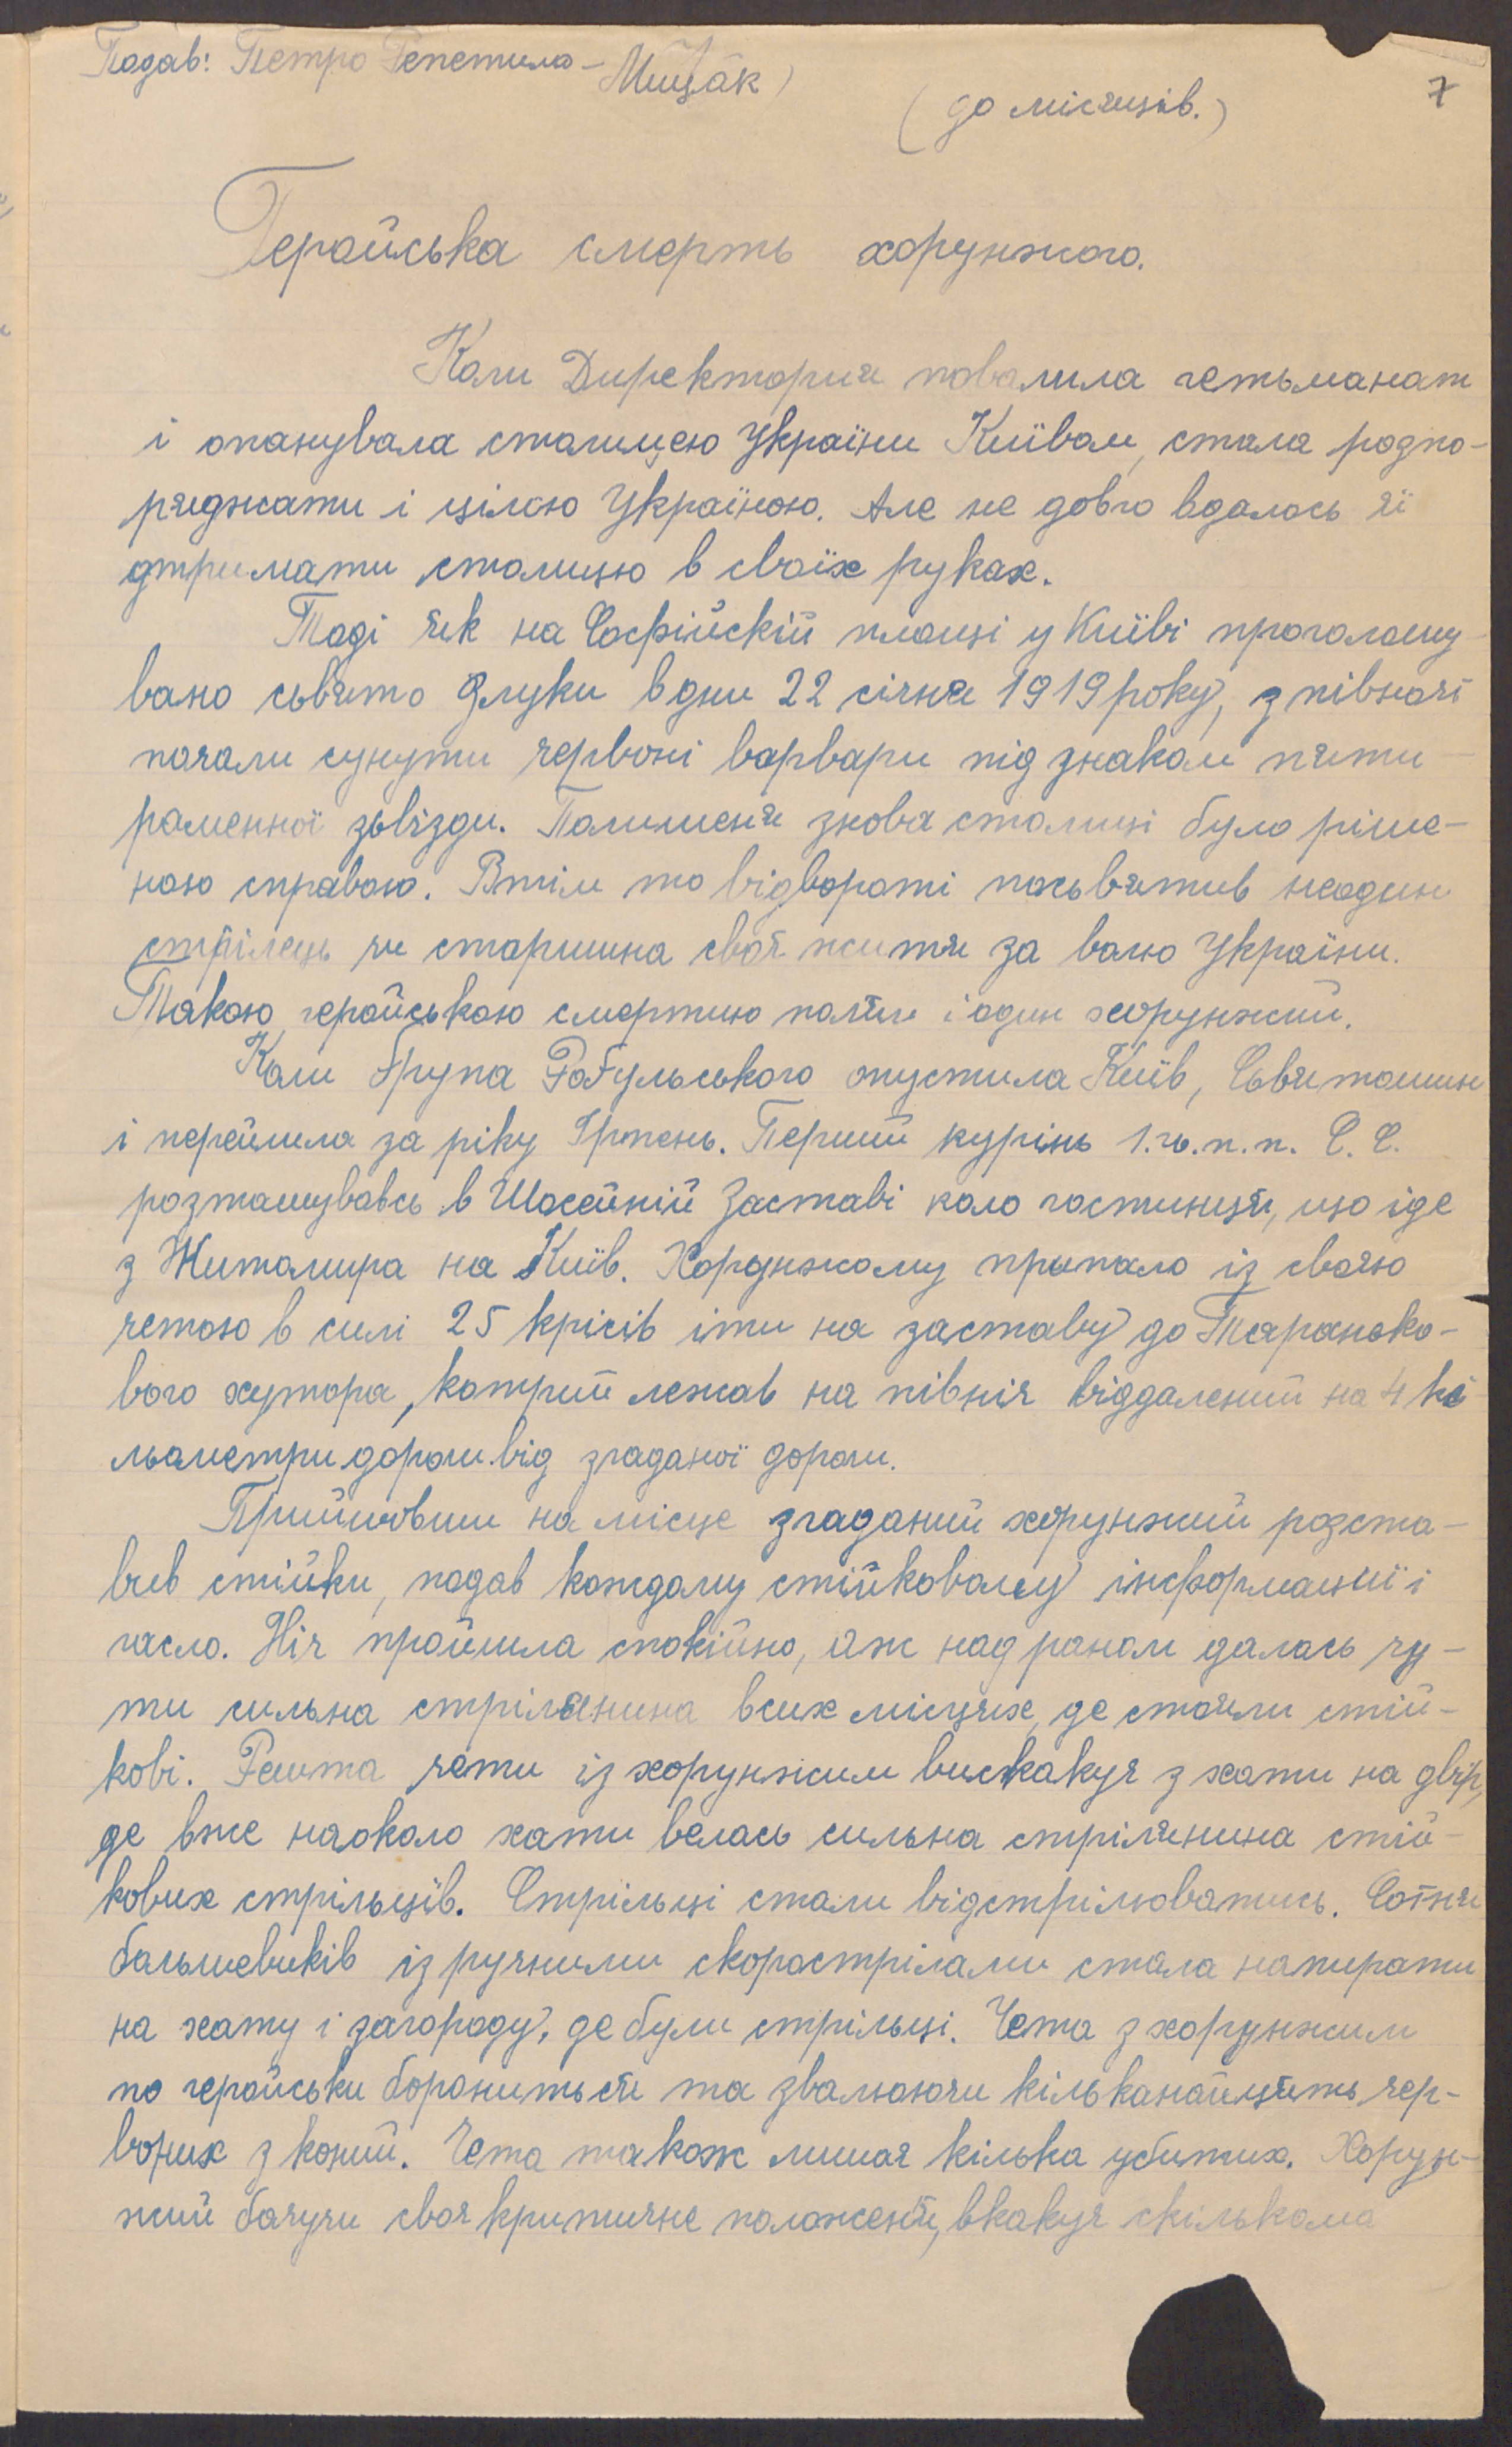 Подав: Петро Репетило - Мищак)
(до місяців.)
7
Геройська смерть хорунжого.
Коли Директория повалила гетьманат
і опанувала столицею України Київом, стала розпо-
ряджати і цілою Україною. Але не довго вдалось її
дтримати столицю в своїх руках.
Тоді як на Софійскій площі у Київі проголошу-
вано сьвято Злуки в дни 22 січня 1919 року, з півночі
почали сунути червоні варвари під знаком пяти-
раменної зьвізди. Полишеня знова столиці було ріше-
ною справою. Втім то відвороті посьвятив неодин
стрілець чи старшина своє житя за волю України.
Такою геройською смертию поляг і один хорунжий.
Коли Група Рогульського опустила Київ, Сьвятошин
і перейшла за ріку Ірпень. Перший курінь 1. го. п. п. С. С.
розташувавсь в Шосейній Заставі коло гостинця, що іде
з Житомира на Київ. Хорунжому припало із своєю
четою в силі 25 крісів іти на заставу до Таранько-
вого хутора, котрий лежав на північ віддалений на 4 кі-
льометри дороги від згаданої дороги.
Прийшовши на місце згаданий хорунжий розста-
вив стійки, подав кождому стійковому інформациї і
гасло. Ніч пройшла спокійно, аж над раном далась чу-
ти сильна стрілянина всих місцях, де стояли стій-
кові. Решта чети із хорунжим вискакує з хати на двір,
де вже наоколо хати велась сильна стрілянина стій-
кових стрільців. Стрільці стали відстрілюватись. Сотня
большевиків із ручними скорострілами стала напирати
на хату і загороду, де були стрільці. Чета з хорунжим
по геройськи борониться та звалюючи кільканайцять чер-
воних з коний. Чета також лишає кілька убитих. Хорун-
жий бачучи своє критичне положеня, вкакує скількома